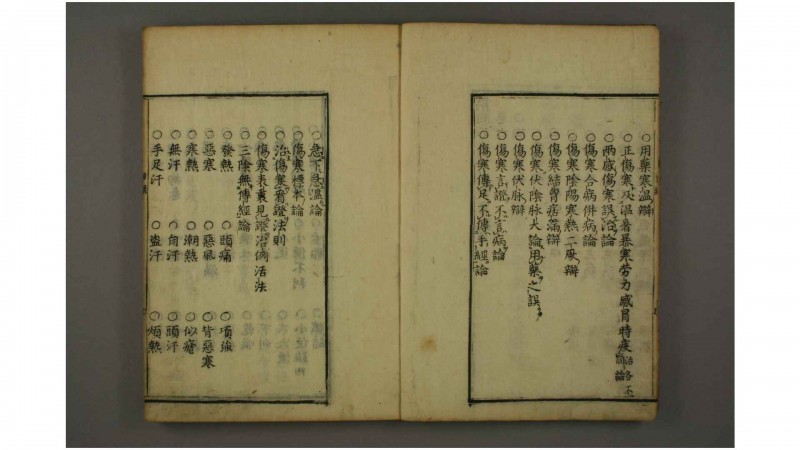 ○用藥寒溫辯
○正傷寒及溫暑暴寒勞力感冒時疫治各不同論
○兩感傷寒誤治論
○傷寒合病併病論
○傷寒陰陽寒熱二厥辯
○傷寒結胷痞滿辯
○傷寒伏陰脉大論用藥之誤
○傷寒伏脉辯
○傷寒言證不言病論
○傷寒傳足不傳手經論
○急下急溫論
○傷寒標本論
○治傷寒看證法則
○傷寒表裏見證治例活法
○三陰無傳經論
○發熱 ○頭痛 ○項強
○惡寒 ○惡風 ○背惡寒
○寒熱 ○潮熱 ○似瘧
○無汗 ○自汗 ○頭汗
○手足汗 ○盜汗 ○煩熱